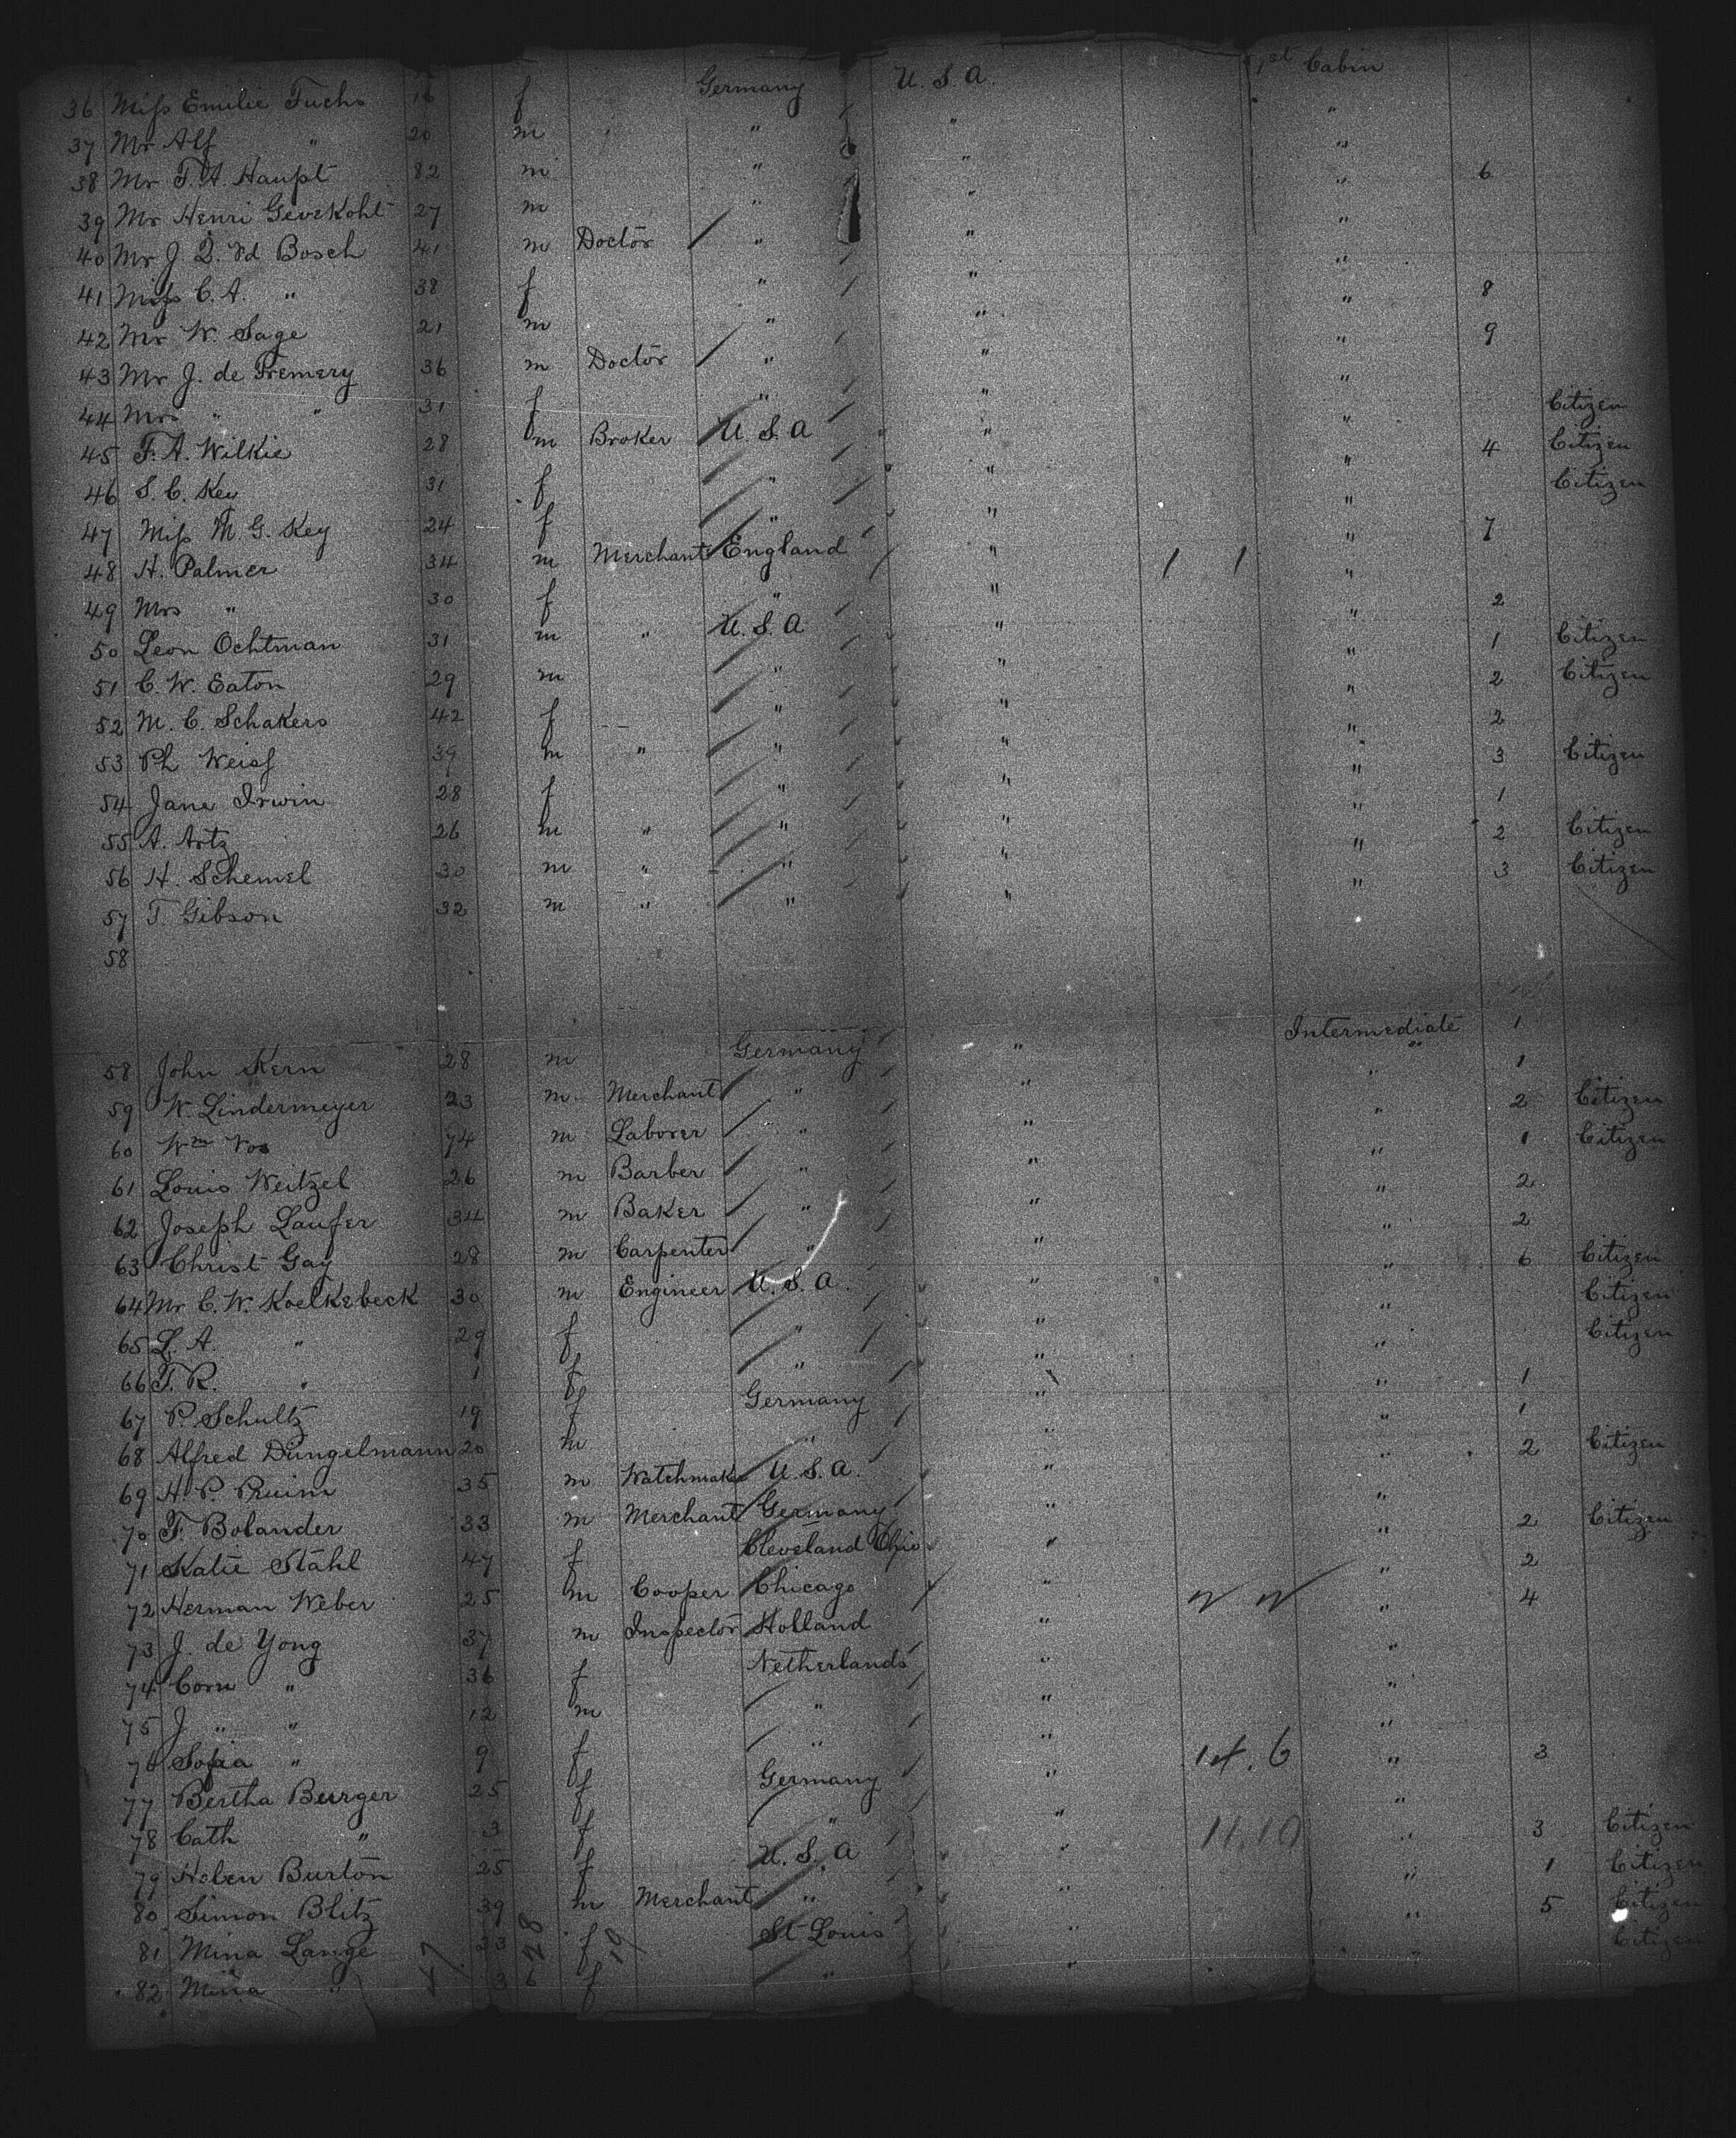 36 Miss Emilie Fuchs 16 f Germany U. S. A. 1st Cabin
37 Mr Alf " 20 m " " "
38 Mr F. A. Haupt 82 m " " " 6
39 Mr Henri Gevekoht 27 m " " "
40 Mr J. Q. vd Bosch 41 m Doctor " " "
41 Miss C. A. " 38 f " " " 8
42 Mr W. Sage 21 m " " " 9
43 Mr J. de Fremery 36 m Doctor " " "
44 Mrs " " 31 f " " " Citizen
45 F. A. Wilkie 28 m Broker U. S. A " " 4 Citizen
46 S. C. Key 31 f " " " Citizen
47 Miss M. G. Key 24 f " " " 7
48 H. Palmer 34 m Merchant England " 1 1 "
49 Mrs " 30 f " " " 2
50 Leon Ochtman 31 m " U. S. A " " 1 Citizen
51 C. W. Eaton 29 m " " " 2 Citizen
52 M. C. Schakers 42 f " " " 2
53 Ph Weiss 39 m " " " " 3 Citizen
54 Jane Irwin 28 f " " " 1
55 A. Artz 26 m " " " " 2 Citizen
56 H. Schemel 30 m " " " " 3 Citizen
57 T. Gibson 32 m " " " "
58
58 John Kern 28 m Germany " Intermediate 1
59 W. Lindermeyer 23 m Merchant " " " 1
60 Wm Vos 74 m Laborer " " " 2 Citizen
61 Louis Weitzel 26 m Barber " " " 1 Citizen
62 Joseph Laufer 34 m Baker " " " 2
63 Christ Gay 28 m Carpenter " " " 2
64 Mr C. W. Koelkebeck 30 m Engineer U. S. A. " " 6 Citizen
65 L. A. " 29 f " " " Citizen
66 T. R. " 1 f " " " Citizen
67 P. Schultz 19 f Germany " " 1
68 Alfred Dungelmann 20 m " " " 1
69 H. P. Pruim 35 m Watchmaker U. S. A. " " 2 Citizen
70 F. Bolander 33 m Merchant Germany " "
71 Katie Stahl 47 f Cleveland Ohio " " 2 Citizen
72 Herman Weber 25 m Cooper Chicago " " 2
73 J. de Yong 37 m Inspector Holland " " 4
74 Corn " 36 f Netherlands " "
75 J " " 12 m " " "
76 Sofia " 9 f " " "
77 Bertha Burger 25 f Germany " 14.6 " 3
78 Cath " 3 f " " "
79 Helen Burton 25 f U. S. A " 11.10 " 3 Citizen
80 Simon Blitz 39 m Merchant " " " 1 Citizen
81 Mina Lange 23 f St Louis " " 5 Citizen
82 Mina " 3 6 f " " " Citizen